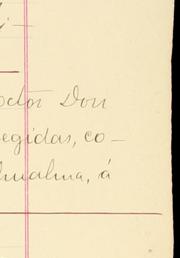 octor Don
egidas, co-
lmalma, á